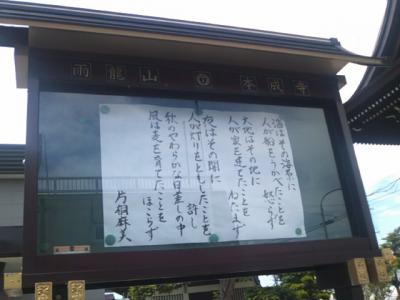 雨龍山 本成寺
海はその海界に
人が船をうかべたことを
怒らず
大地はその地に
人が家を建てたことを
ねたまず
夜はその闇に
人が灯りをともしたことを
許し
秋のやわらかな日差しの中
風は麦を育てたことを
ほこらず
片桐麻美